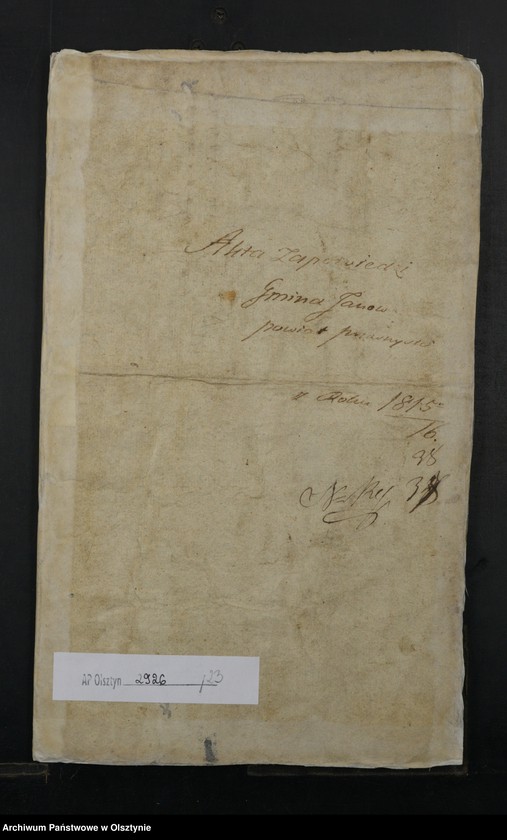 Akta Zapowiedzi
Gmina Janow
powiat przasnyski
w Roku 1815
16.
38
AP Olsztyn 2926 /23
Archiwum Państwowe w Olsztynie